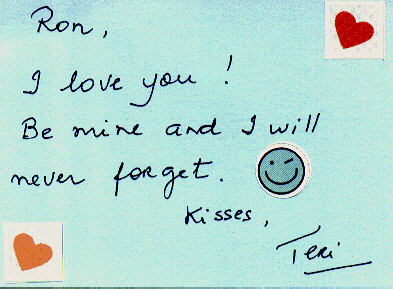 Ron,
I love you !
Be mine and I will
never forget.
Kisses,
Teri